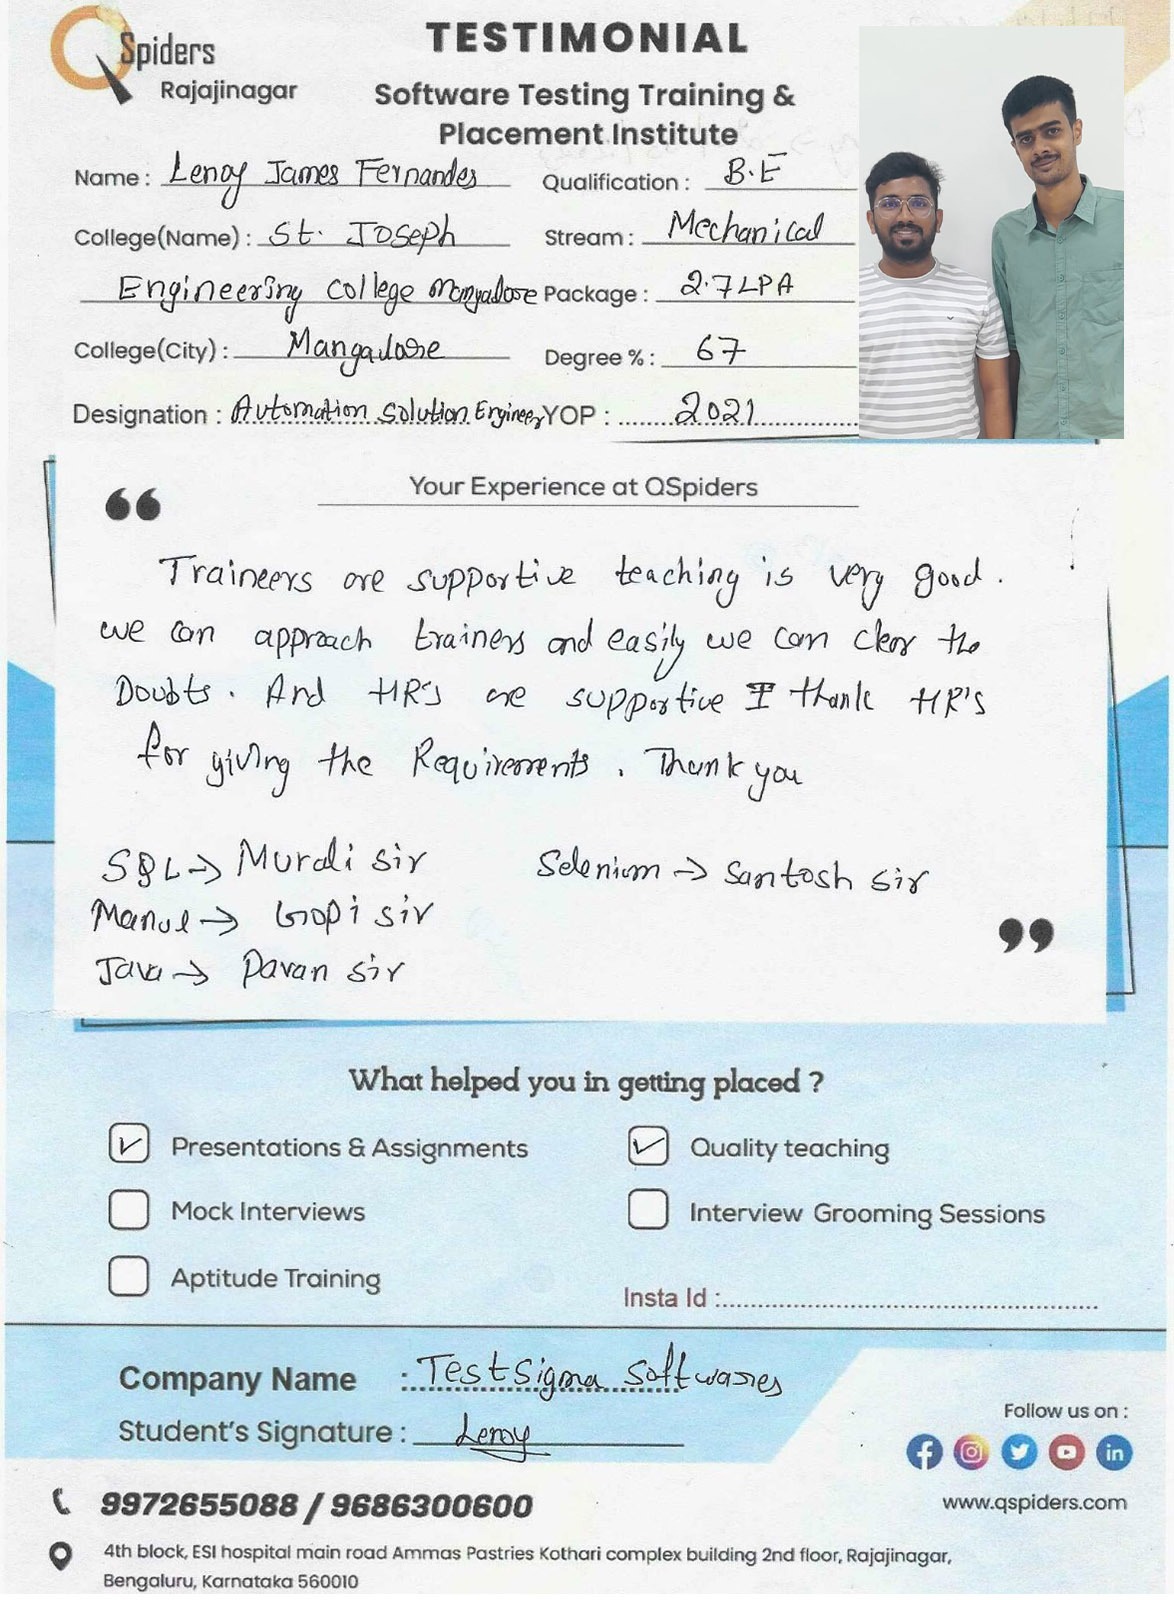 QSpiders
Rajajinagar
TESTIMONIAL
Software Testing Training &
Placement Institute
Name : Leroy James Fernandes
Qualification : B.E
College(Name) : St. Joseph
Stream : Mechanical
Engineering college Mangalore
Package : 2.7 LPA
College(City) : Mangalore
Degree % : 67
Designation : Automation Solution Engineer
YOP : 2021
Your Experience at QSpiders
Traineers are supportive teaching is very good.
we can approach trainers and easily we can clear the
Doubts. And HR's are supportive I thank HR's
for giving the Requirements. Thank you
SQL → Murali sir
Selenium → Santosh sir
Manul → Gopi sir
Java → Pavan sir
What helped you in getting placed ?
Presentations & Assignments
Quality teaching
Mock Interviews
Interview Grooming Sessions
Aptitude Training
Insta Id :
Company Name : Testsigma Softwares
Student's Signature : Leroy
Follow us on :
9972655088 / 9686300600
www.qspiders.com
4th block, ESI hospital main road Ammas Pastries Kothari complex building 2nd floor, Rajajinagar,
Bengaluru, Karnataka 560010